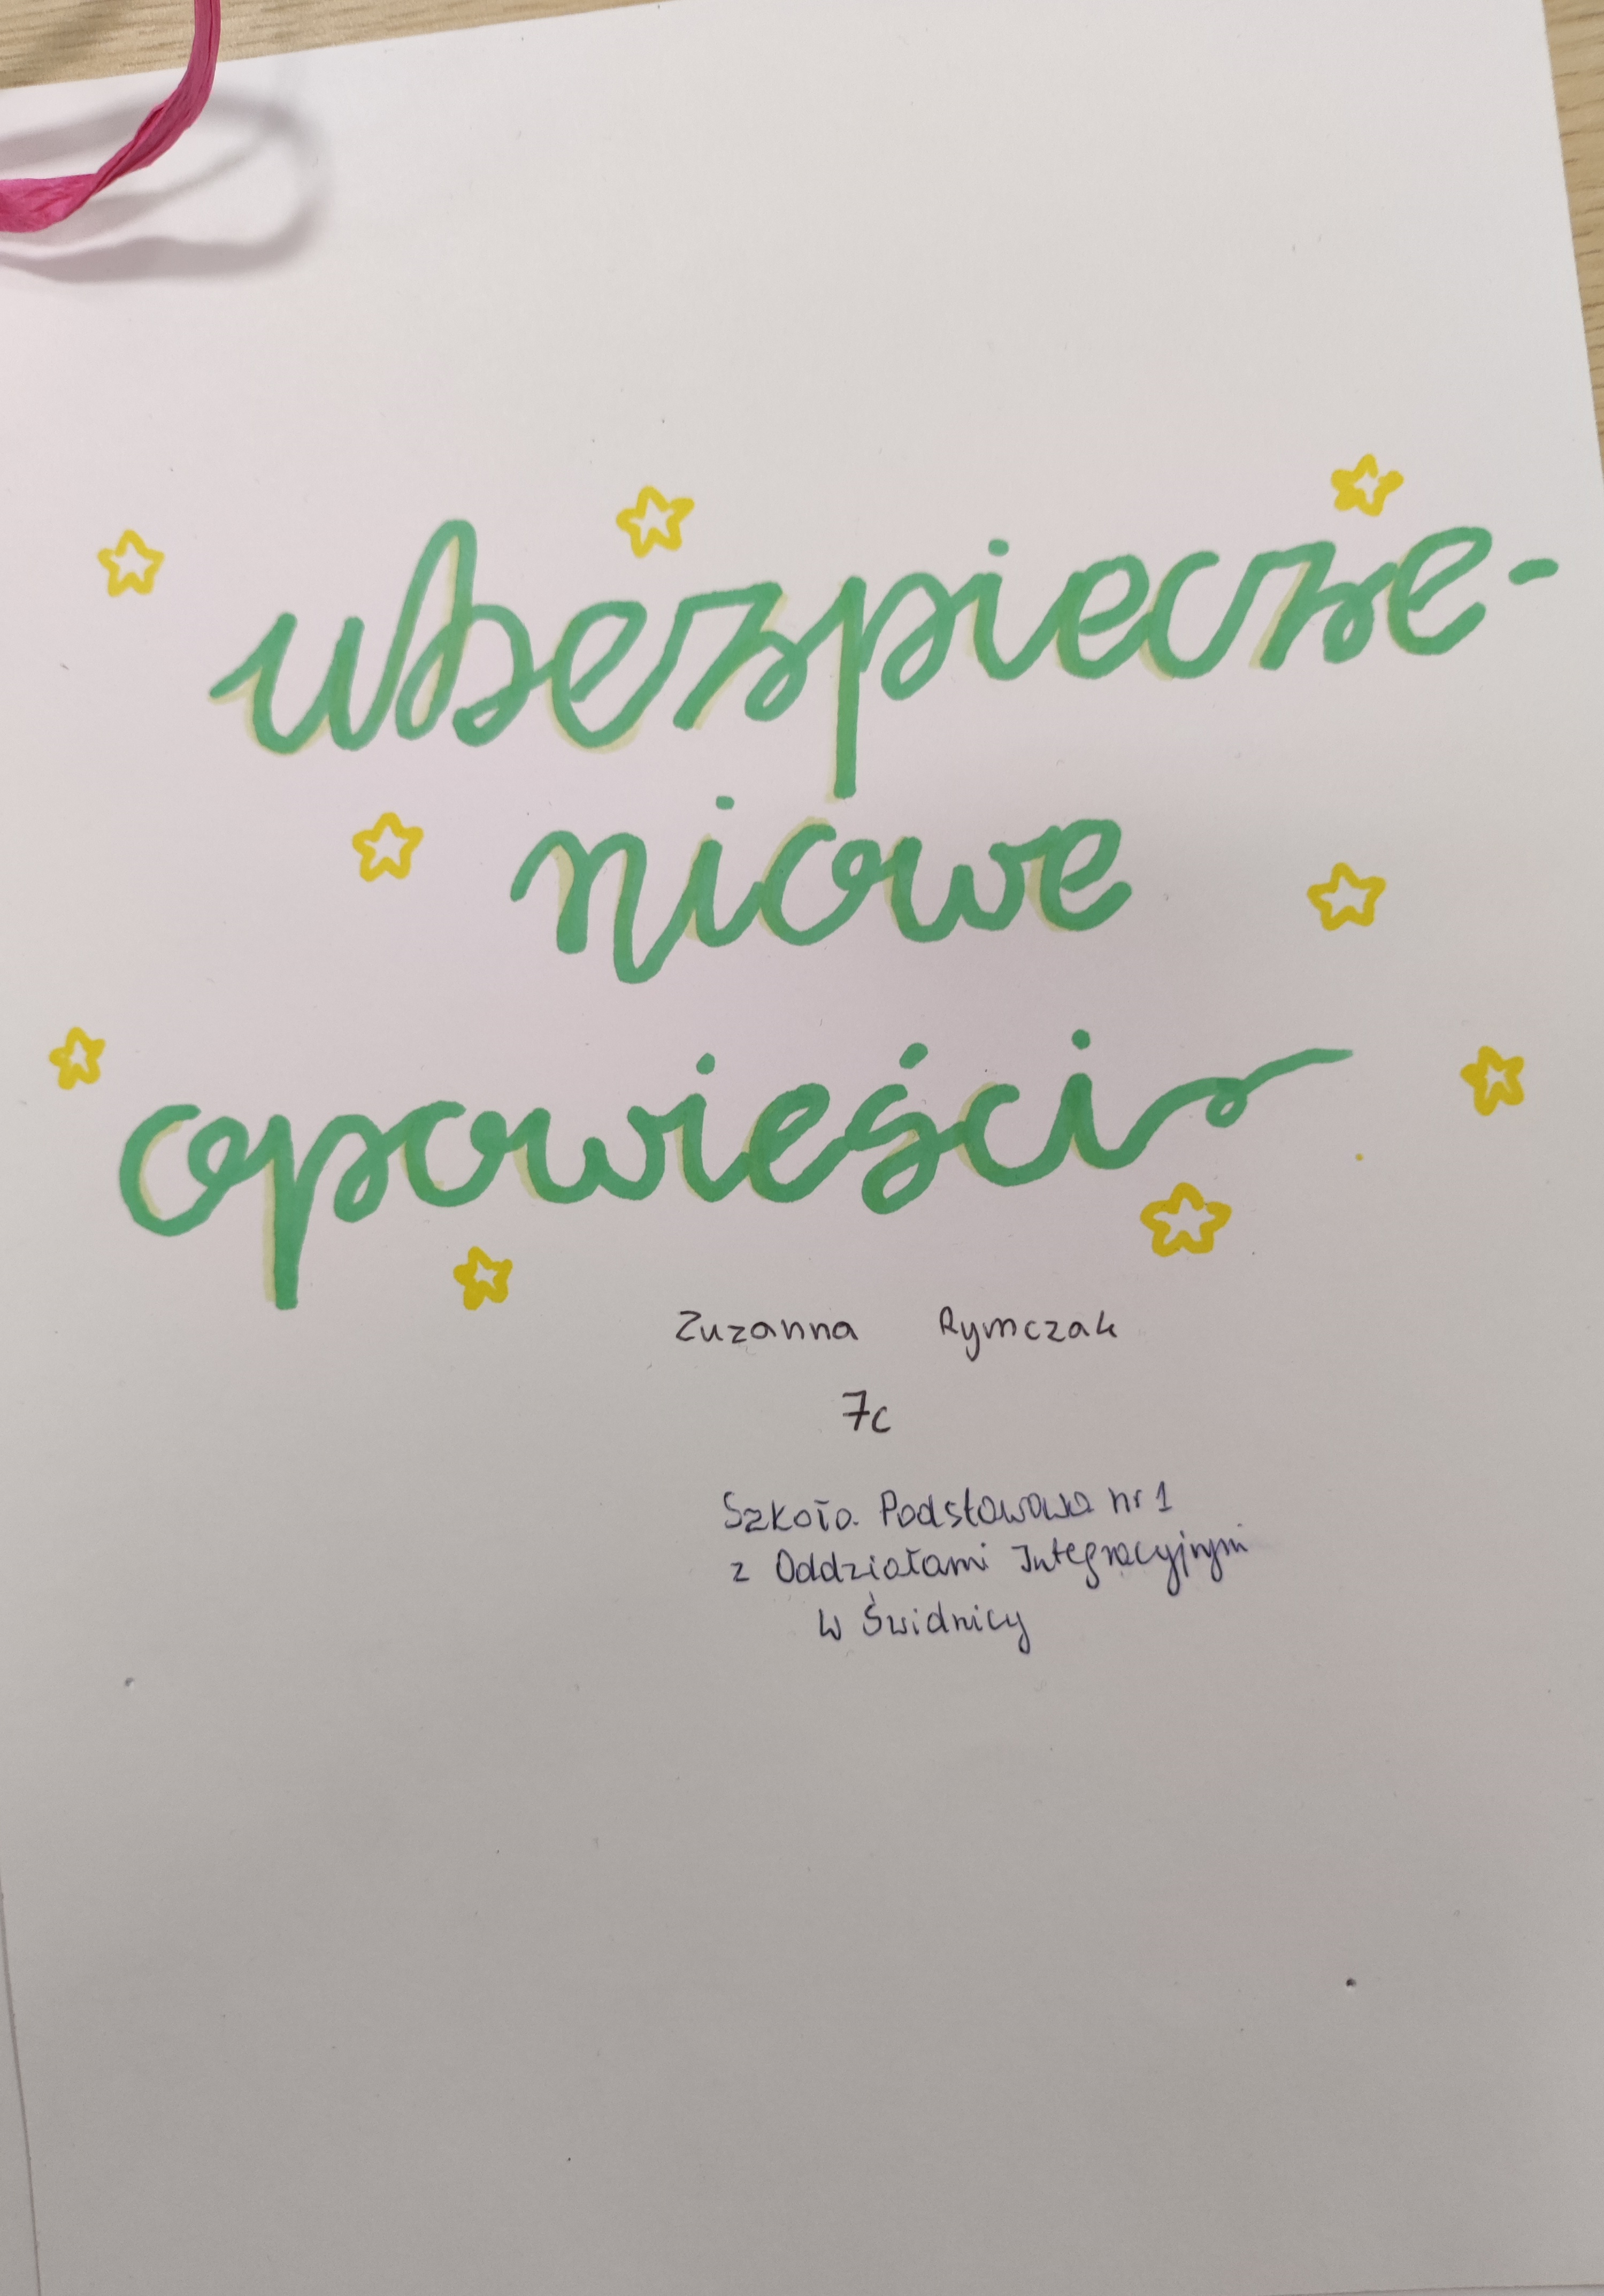 ubezpiecze-
niowe
opowieści
Zuzanna Rymczak
7c
Szkoła Podstawowa nr 1
z Oddziałami Integracyjnymi
w Świdnicy